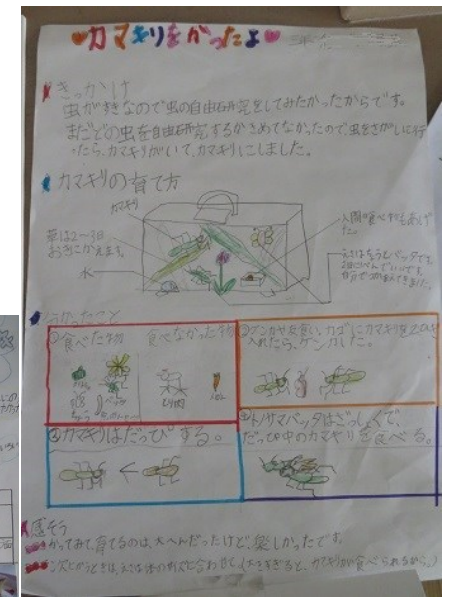 カマキリをかったよ
きっかけ
虫がすきなので虫の自由研究をしてみたかったからです。
まだどの虫を自由研究するかきめてなかったので虫をさがしに行
ったら、カマキリがいて、カマキリにしました。
カマキリの育て方
カマキリ
草は2〜3日
おきにかえます。
水
人間の食べ物もあげ
た。
えさはちょうやバッタでも
自分でつかまえてきました。
わかったこと
①食べた物
食べなかった物
とり肉
②ケンカや友食い、カゴにカマキリを2ひき
入れたら、ケンカした。
③カマキリはだっぴする。
④トノサマバッタはざっしょくで、
だっぴ中のカマキリを食べる。
感そう
かってみて育てるのは、大へんだったけど、楽しかったです。
次にかうときは、えさは体のサイズに合わせて、(大きすぎると、カマキリが食べられるから。)